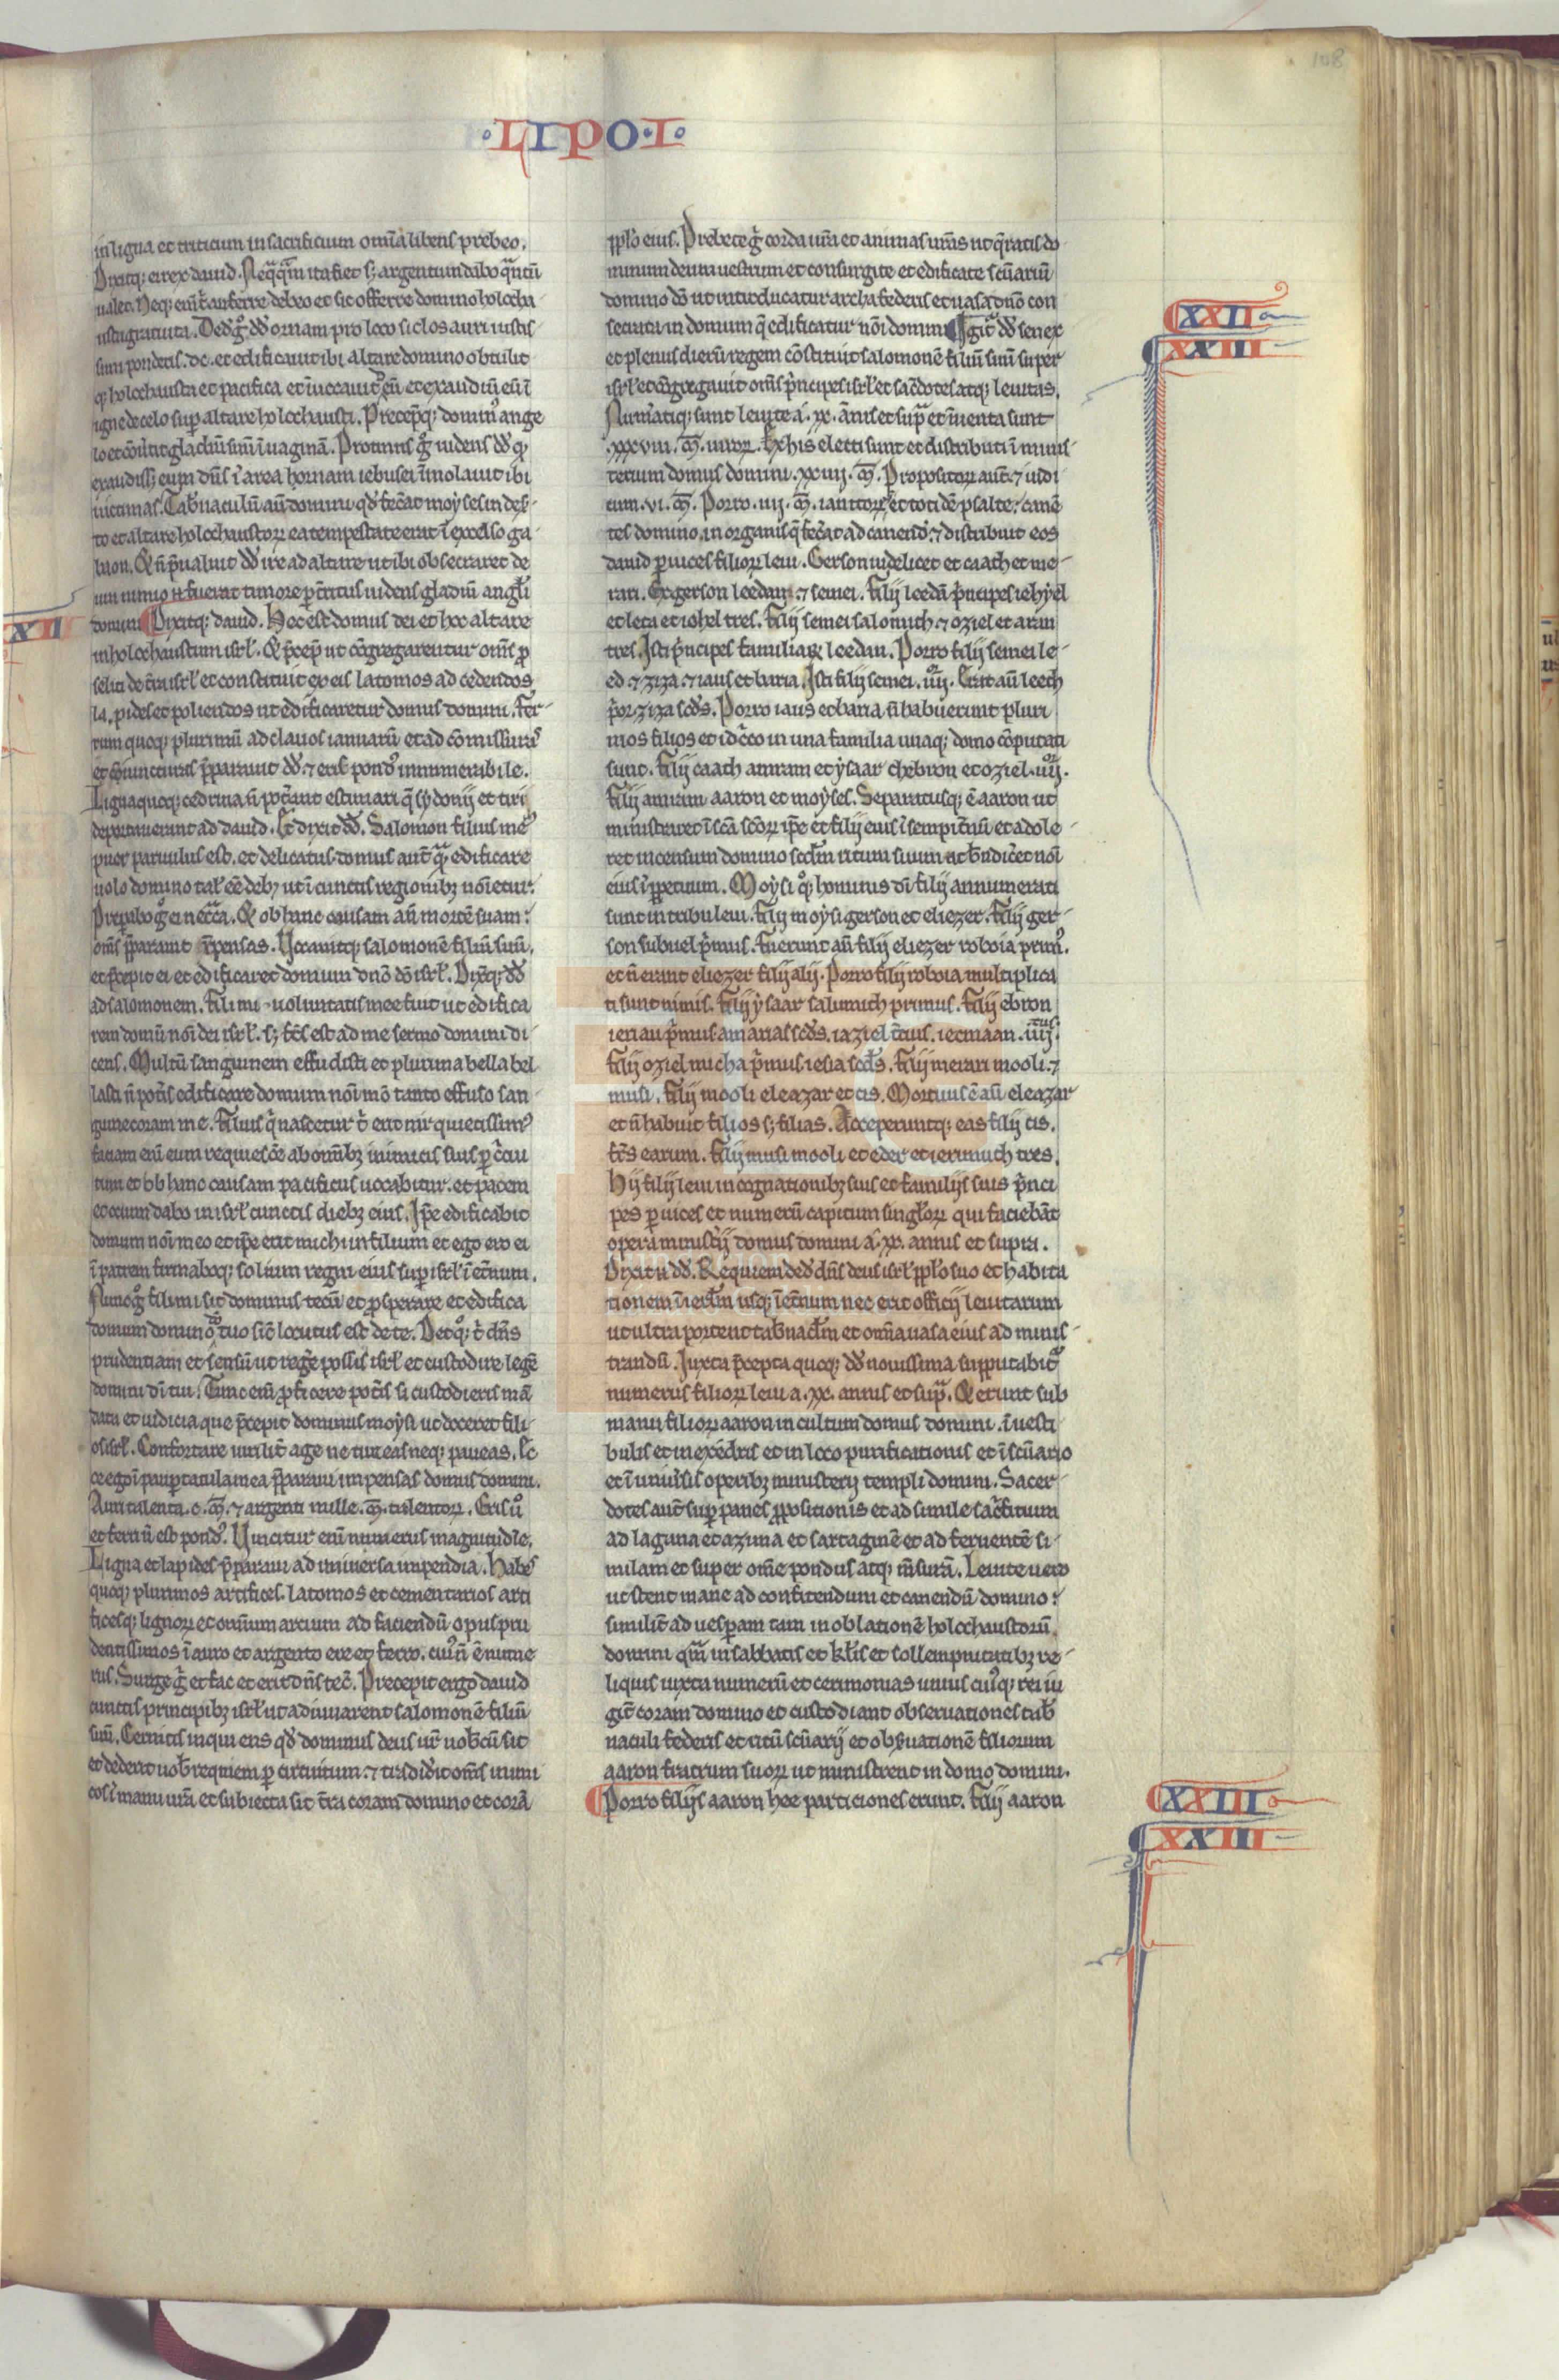 108
·LIPO·I·
in ligna et triticum in sacrificium omīa libens prebeo.
Dixitq; ei rex dauid. Neq̄q̄m ita fiet s; argentum dabo q̄ntū
ualet. Neq; enī t̄ auferre debeo et sic offerre domino holocha
usta gratuita. Dedḡ dd̄ ornam pro loco siclos auri iustis
simi ponderis. dc. et edificauit ibi altare domino obtulit
q; holochausta et pacifica et īuocauit dn̄m et exaudiū eū ī
igne de celo sup altare holochausti. Precepq; domin᾿ ange
lo et cōūtit gladiū suū ī uaginā. Protinus ḡ uidens dd̄ q;
exaudiss; eum dn̄s ī area hornam iebusei īmolauit ibi
uictimas. Tab̄naculū aū domini qd̄ fec̄at moyses in deser
to et altare holochaustor ea tempestate erat ī excelso ga
baon. Et n̄ p̄ualuit dd̄ ire ad altare ut ibi obsecraret de
um nimio n̄ fuerat timore p̄t̄ritus uidens gladiū angl̄i
XXII
domini Dixitq; dauid. Hec est domus dei et hoc altare
in holochaustum isrl̄. Et p̄cep̄ ut cōgregarentur om̄s p̄ro
seliti de t̄ra isrl̄ et constituit ex eis latomos ad cedendos
la,pides et poliendos ut edificaretur domus domini. Fer-
rum quoq; plurimū ad clauos ianuarū et ad cōmissuras
et cōiuncturas p̄parauit dd̄ ⁊ eris pond᾿ innumerabile.
Ligna quoq; cedrina n̄ pot̄ant estimari q̄ sydonij et tiri
deportauerunt ad dauid. Et dixit dd̄. Salomon filius me᾿
puer paruulus est. et delicatus domus aut̄ q̄ edificare
uolo domino tal̄ eē deb; ut ī cunctis regionib; nōīetur.
Preparabo ḡ ei nec̄c̄a. Et ob hanc causam an̄ mortē suam
om̄s p̄parauit īpensas. Vocauitq; salomonē filiū suū.
et p̄cepit ei et edificaret domum dn̄o dō isrl̄. Dix̄q; dd̄
ad salomonem. Fili mi uoluntatis mee fuit ut edifica
rem domū nōi dei isrl̄. s; fc̄s est ad me sermo domini di
cens. Multū sanguinem effudisti et plurima bella bel
lasti n̄ pot̄is edificare domum nōi mō tanto effuso san
guine coram me. Filius q̄ nascetur t̄ erit uir quietissim᾿
faciam enī eum requiesc̄e ab omīb; inimicis suis p c̄cui
tum et ob hanc causam pacificus uocabitur. et pacem
et ocium dabo in isrl̄ cunctis dieb; eius. Ip̄e edificabit
domum nōi meo et ip̄e erit michi in filium et ego ero ei
ī patrem firmaboq; solium regni eius sup isrl̄ ī et̄num.
Nunc ḡ fili mi sit dominus tecū et p̄sperare et edifica
domum domino d̄o tuo sic̄ locutus est de te. Det q; t̄ dn̄s
prudentiam et sensū ut reḡe possis isrl̄ et custodire legē
domini dī tui. Tunc enī p̄ficere pot̄is si custodieris mā
data et iudicia que p̄cepit dominus moysi ut doceret fili
os isrl̄. Confortare uirilit̄ age ne timeas neq; paueas. Ec
ce ego ī paup̄tatula mea p̄paraui impensas domus domini.
Auri talenta .c. m̄. ⁊ argenti mille. m̄. talentor. Eris ū
et ferri n̄ est pond᾿. Vincitur enī numerus magnitudīe.
Ligna et lapides p̄paraui ad uniuersa impendia. Habes
quoq; plurimos artifices. latomos et cementarios arti
ficesq; lignor et omnium artium ad faciendū opus pru
dentissimos ī auro et argento ere et ferro. cui᾿ n̄ ē nume
rus. Surge ḡ et fac et erit dn̄s tec̄. Precepit ergo dauid
cunctis principib; isrl̄ ut adiuuarent salomonē filiū
suū. Cernitis inquiens qd̄ dominus deus ur̄ uob̄cū sit
et dederit uob̄ requiem p circuitum ⁊ tradid̄it om̄s inimi
cos ī manu ur̄a et subiecta sit t̄ra coram domino et corā
pp̄lo eius. Prebete ḡ corda ur̄a et animas ur̄as ut q̄ratis do
minum deum uestrum et consurgite et edificate scūariū
domino dō ut introducatur archa federis et uasa dn̄o con
secrata in domum q̄ edificatur nōi domini Igit̄ dd̄ senex
XXII
XXIII
et plenus dierū regem cōstituit salomonē filiū suū super
isrl̄ et cōgregauit om̄s p̄ncipes isrl̄ et sac̄dotes atq; leuitas.
Num̄atiq; sunt leuite a .xx. annis et sup̄ et īuenta sunt
.xxxviii. m̄. uiror. Ex his electi sunt et distributi ī minis
terium domus domini. xxiiij. m̄. Propositor aut̄ ⁊ iudi
cum .vi. m̄. Porro .iiij. m̄. ianitor et totidē psalte. canē
tes domino in organis q̄ fec̄at ad canend̄. ⁊ distribuit eos
dauid p uices filior leui. Gerson uidelicet et caath et me-
rari. Ex gerson leedan. ⁊ semei. Filij leedā p̄nceps iehyel
et leta et iohel tres. Filij semei salomich. ⁊ oziel et aran
tres. Isti p̄ncipes familiar leedan. Porro filij semei le-
ed ⁊ ziza. ⁊ iaus et baria. Isti filij semei. iiij. Erat aū leech
p̄or. ziza sc̄ds. Porro iaus et baria n̄ habuerunt pluri
mos filios et idc̄co in una familia unaq; domo cōputati
sunt. Filij caath amram et ysaar chebron et oziel .iiij.
Filij amram aaron et moyses. Separatusq; ē aaron ut
ministraret ī sc̄a sc̄or ip̄e et filij eius ī sempit̄nū et adole-
ret incensum domino scd̄m ritum suum ac b̄ndic̄et nōi
eius ī ppetuum. Moysi q; hominis dī filij annumerati
sunt in tribu leui. Filij moysi gerson et eliezer. Filij ger-
son subuel p̄mus. Fuerunt aū filij eliezer roboia prim᾿.
et n̄ erant eliezer filij alij. Porro filij roboia multiplica
ti sunt nimis. Filij ysaar salumich primus. Filij ebron
ieriau p̄mus amarias sc̄ds. iaziel t̄cius. iecmaan .iiij.
Filij oziel micha p̄mus iesia sc̄ds. Filij merari mooli. ⁊
musi. Filij mooli eleazar et cis. Mortuus ē aū eleazar
et n̄ habuit filios s; filias. Acceperuntq; eas filij cis.
fr̄s earum. Filij musi mooli et eder et ierimuch tres.
Hij filij leui in cognationib; suis et familijs suis p̄nci
pes p uices et numerū capitum singlor qui faciebāt
opera minist̄ij domus domini a .xx. annis et supra.
Dixit n̄ dd̄. Requiem ded̄ dn̄s deus isrl̄ pp̄lo suo et habita
tionem īierlm̄ usq; ī et̄num nec erit officij leuitarum
ut ultra portent tab̄nacl̄m et omīa uasa eius ad minis-
trandū. Iuxta p̄cepta quoq; dd̄ nouissima supputabit̄
numerus filior leui a .xx. annis et sup̄. Et erunt sub
manu filior aaron in cultum domus domini. ī uesti
bulis et in exedris et in loco purificationis et ī scūario
et ī uniūsis operib; ministerij templi domini. Sacer-
dotes aut̄ sup panes p̄positionis et ad simile sac̄ficium
ad lagana et azima et sartaginē et ad feruentē si-
milam et super om̄e pondus atq; m̄surā. Leuite uero
ut stent mane ad confitendum et canendū domino
similit̄ ad uesperam tam in oblationē holochaustorū
domini q̄m in sabbatis et kl̄is et sollempnitatib; re-
liquis iuxta numerū et cerimonias unius cui᾿q; rei iu
git̄ coram domino et custodiant obseruationes tab̄
naculi federis et ritū scūarij et obs̄uationē filiorum
aaron fratrum suor ut ministrent in domo domini.
Porro filijs aaron hee particiones erunt. Filij aaron
XXIII
XXIIII